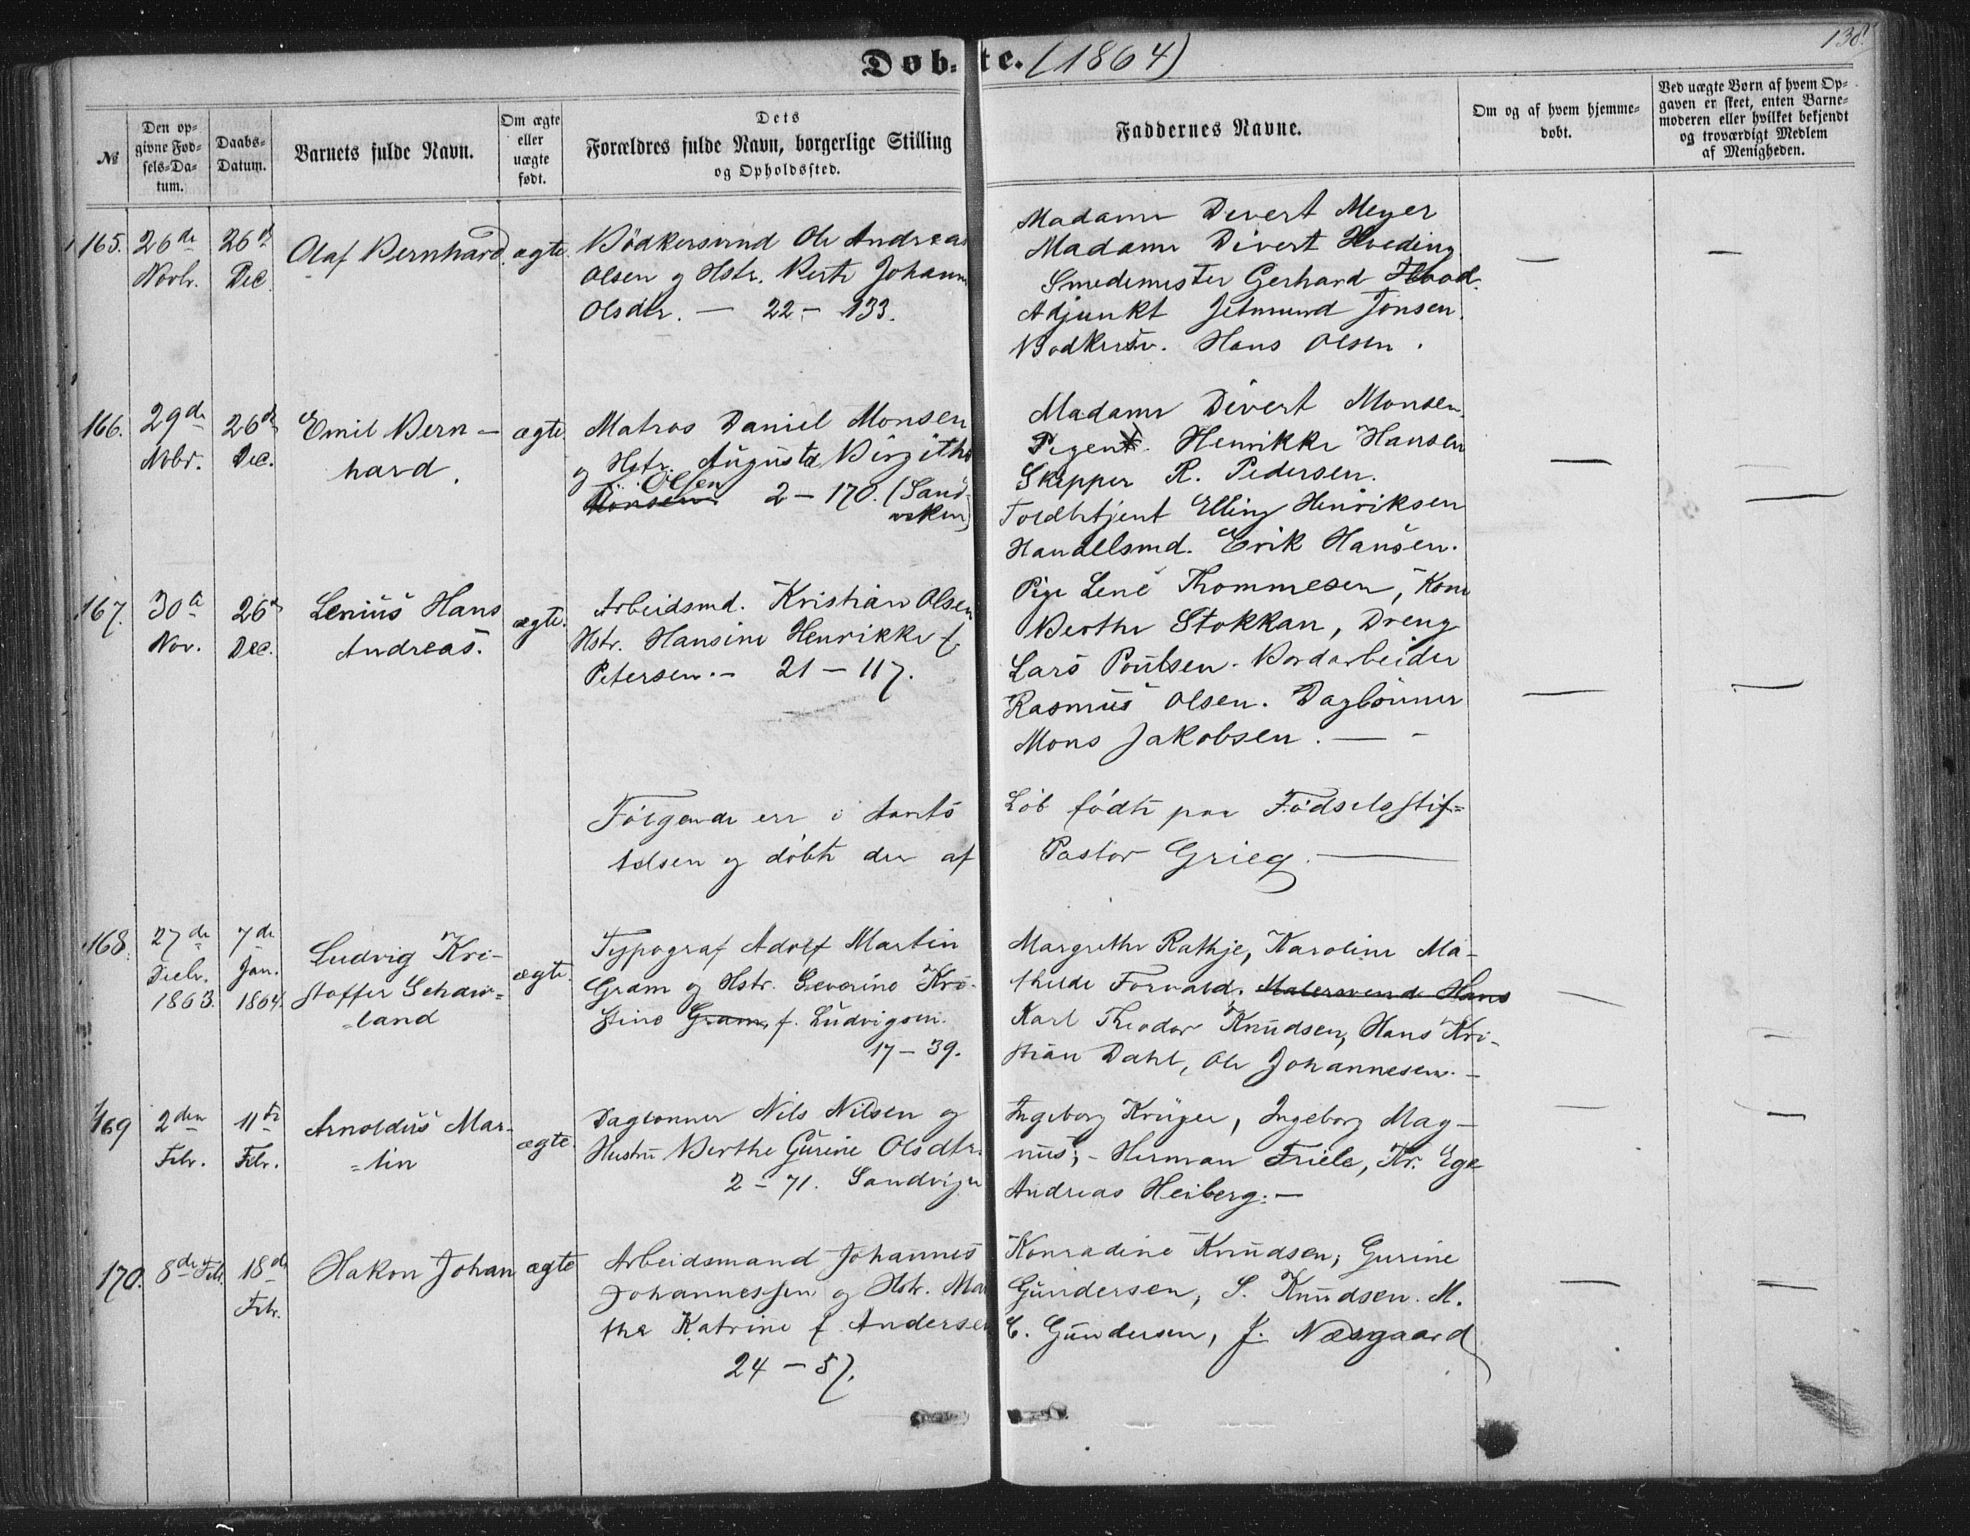 Døb-te. (1864)
138.
№
Den op-
givne Fød-
sels-Da-
tum.
Daabs-
Datum.
Barnets fulde Navn.
Om ægte
eller
uægte
født.
Dets
Forældres fulde Navn, borgerlige Stilling
og Opholdssted.
Faddernes Navne.
Om og af hvem hjemme-
døbt.
Ved uægte Børn af hvem Op-
gaven er skeet, enten Barne-
moderen eller hvilket bekjendt
og troværdigt Medlem
af Menigheden.
165. 26de Novbr. 26de Dec. Olaf Bernhard. ægte.
Bødkersvend Ole Andreas
Olsen og Hstr. Berte Johanne
Olsdtr. — 22 — 133.
Madame Divert Meyer
Madame Divert Hveding
Smedemester Gerhard
Adjunkt Jetmund Jonsen.
Bødkersv. Hans Olsen.
— —
166. 29de Novbr. 26de Dec. Emil Bern-
hard. ægte.
Matros Daniel Monsen
og Hstr. Augusta Birgithe
Olsen
Monsen 2 — 170. (Sand-
viken)
Madame Divert Monsen.
Pigen Henrikke Hansen
Skipper R. Pedersen.
Toldbetjent Elling Henriksen
Handelsmd. Erik Hansen.
— —
167. 30te Nov. 26de Dec. Lenius Hans
Andreas. ægte.
Arbeidsmd. Kristian Olsen
Hstr. Hansine Henrikke f.
Petersen. — 21 — 117.
Pige Lene Thommesen, Kone
Berthe Stokkan, Dreng
Lars Poulsen. Bordarbeider
Rasmus Olsen. Daglønner
Mons Jakobsen. —
— —
Følgende ere i Aarets Løb fødte paa Fødselsstif-
telsen og døbte der af Pastor Grieg. —
168. 27de Decbr. 1863. 7de Jan. 1864. Ludvig Kri-
stoffer Schau-
land ægte.
Typograf Adolf Martin
Gram og Hstr. Severine Kri-
stine Gram, f. Ludvigsen.
17 — 39.
Margrethe Rathje, Karoline Ma-
thilde Forvald. Malersvend Hans
Karl Theodor Knudsen, Hans Kri-
stian Dahl, Ole Johannesen. —
— —
169 2den Febr. 11te Febr. Arnoldus Mar-
tin ægte.
Daglønner Nils Nilsen og
Hustru Berthe Gurine Olsdtr.
2 — 71. Sandvigen
Ingeborg Krüger, Ingeborg Mag-
nus; — Herman Friele, Kr. Ege
Andreas Heiberg. —
— —
170. 8de Febr. 18de Febr. Hakon Johan ægte
Arbeidsmand Johannes
Johannessen og Hstr. Mar
the Katrine f. Andersen
24 — 57.
Konradine Knudsen, Gurine
Gundersen, S. Knudsen. M.
C. Gundersen, J. Næsgaard
— —